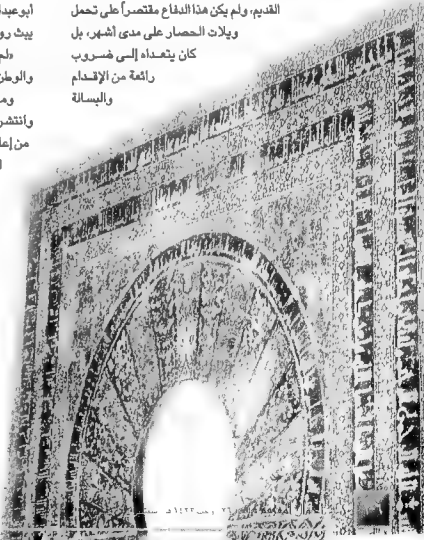 القديم، ولم يكن هذا الدفاع مقتصراً على تحمل
ويلات الحصار على مدى أشهر، بل
كان يتعداه إلى ضروب
رائعة من الإقدام
والبسالة
أبو عبد
يبث رو
والوطن
وأنتشر
من إعا
٧٦ رجب ١٤٢٢هـ